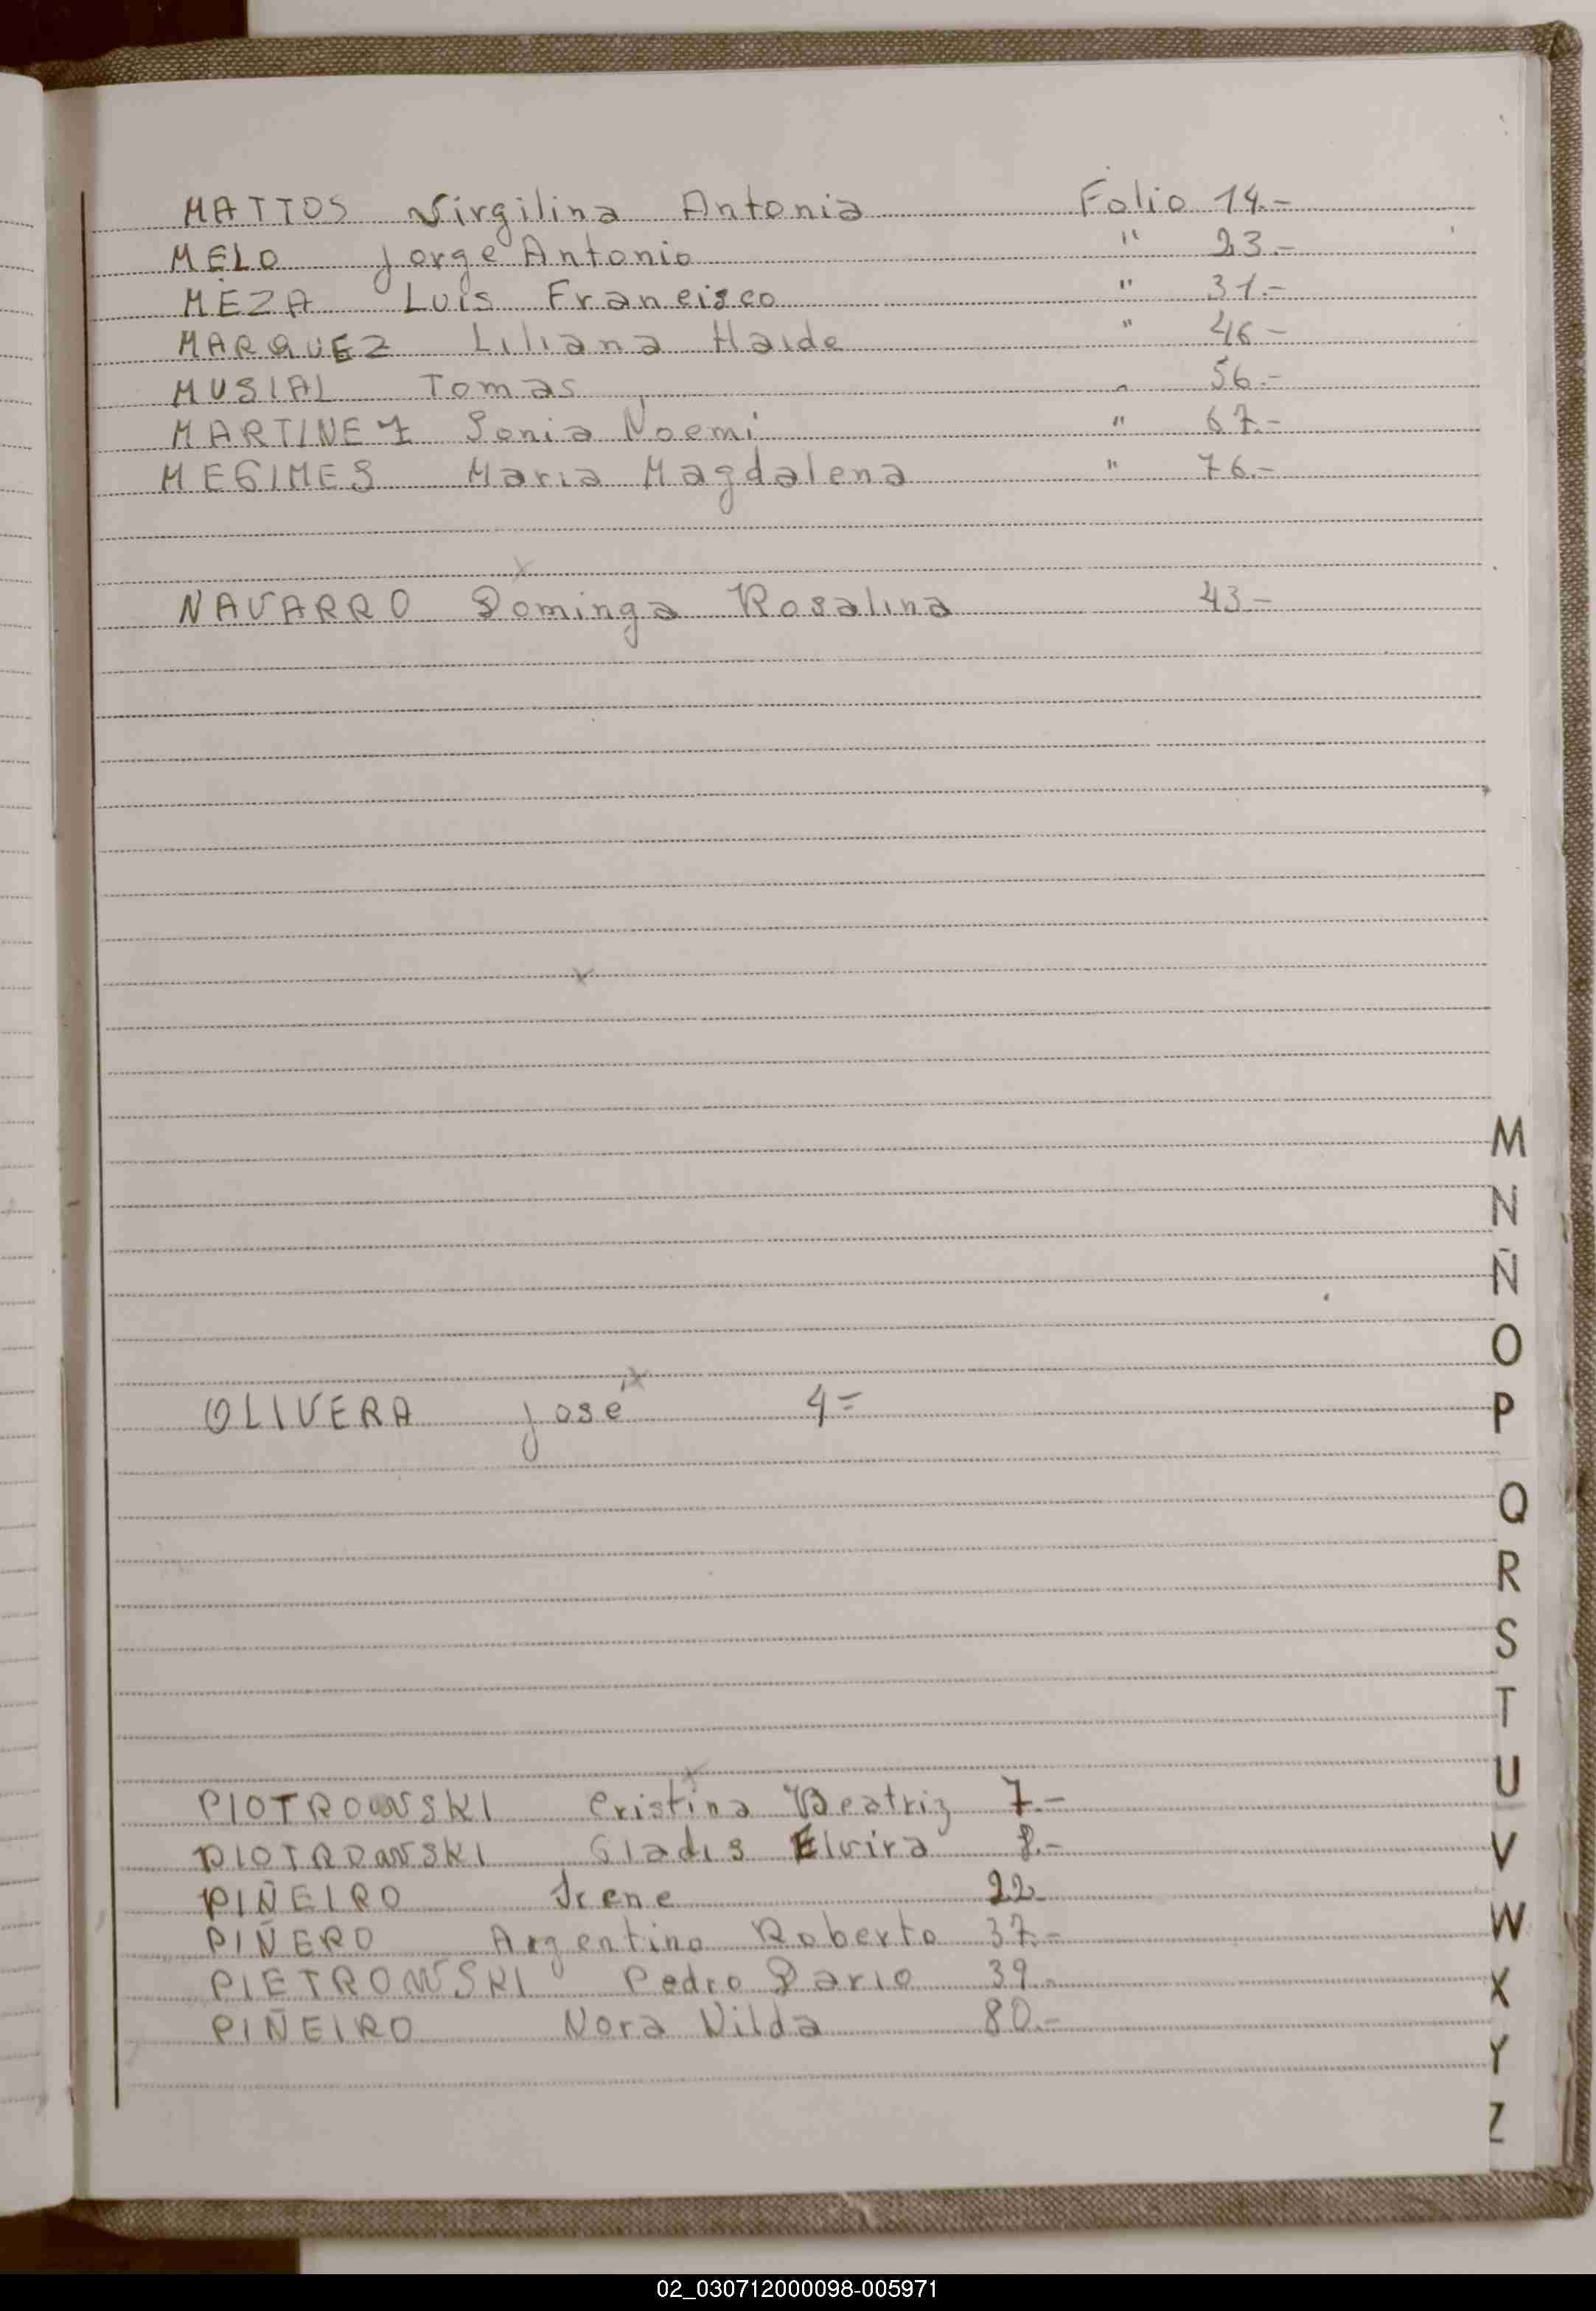 MATTOS Virgilina Antonia Folio 14.-
MELO Jorge Antonio " 23.-
MEZA Luis Francisco " 31.-
MARQUEZ Liliana Haide " 46-
MUSIAL Tomas " 56.-
MARTINEZ Sonia Noemi " 67.-
MEGIMES Maria Magdalena " 76.-
NAVARRO Dominga Rosalina 43-
M
N
Ñ
O
OLIVERA José 4=
P
Q
R
S
T
U
PIOTROWSKI Cristina Beatriz 7.-
PIOTROWSKI Gladis Elvira 8.-
V
PIÑEIRO Irene 22-
W
PIÑERO Argentino Roberto 37.-
PIETROWSKI Pedro Dario 39.-
X
PIÑEIRO Nora Nilda 80.-
Y
Z
02_030712000098-005971